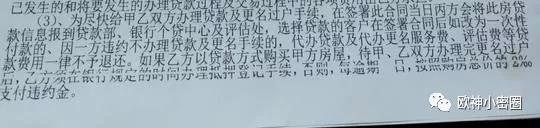 已发生的和将要发生的办理贷款过程及交易过程中的各项费
(3)、为尽快给甲乙双方办理贷款及更名过户手续，在签署此合同当日丙方会将此房贷
款信息报到贷款部、银行个贷中心及评估处，选择贷款的客户在签署合同后如改为一次性
付款的、因一方违约不办理贷款及更名手续的，代办贷款及代办更名服务费、评估费等贷
款费用一律不予退还。如果乙方以贷款方式购买甲方房屋，待甲、乙双方办理完更名过户
后，乙方须在银行规定的时间办理抵押登记手续，否则，每逾期一日，按照购房总价的2%
支付违约金。
欧神小密圈